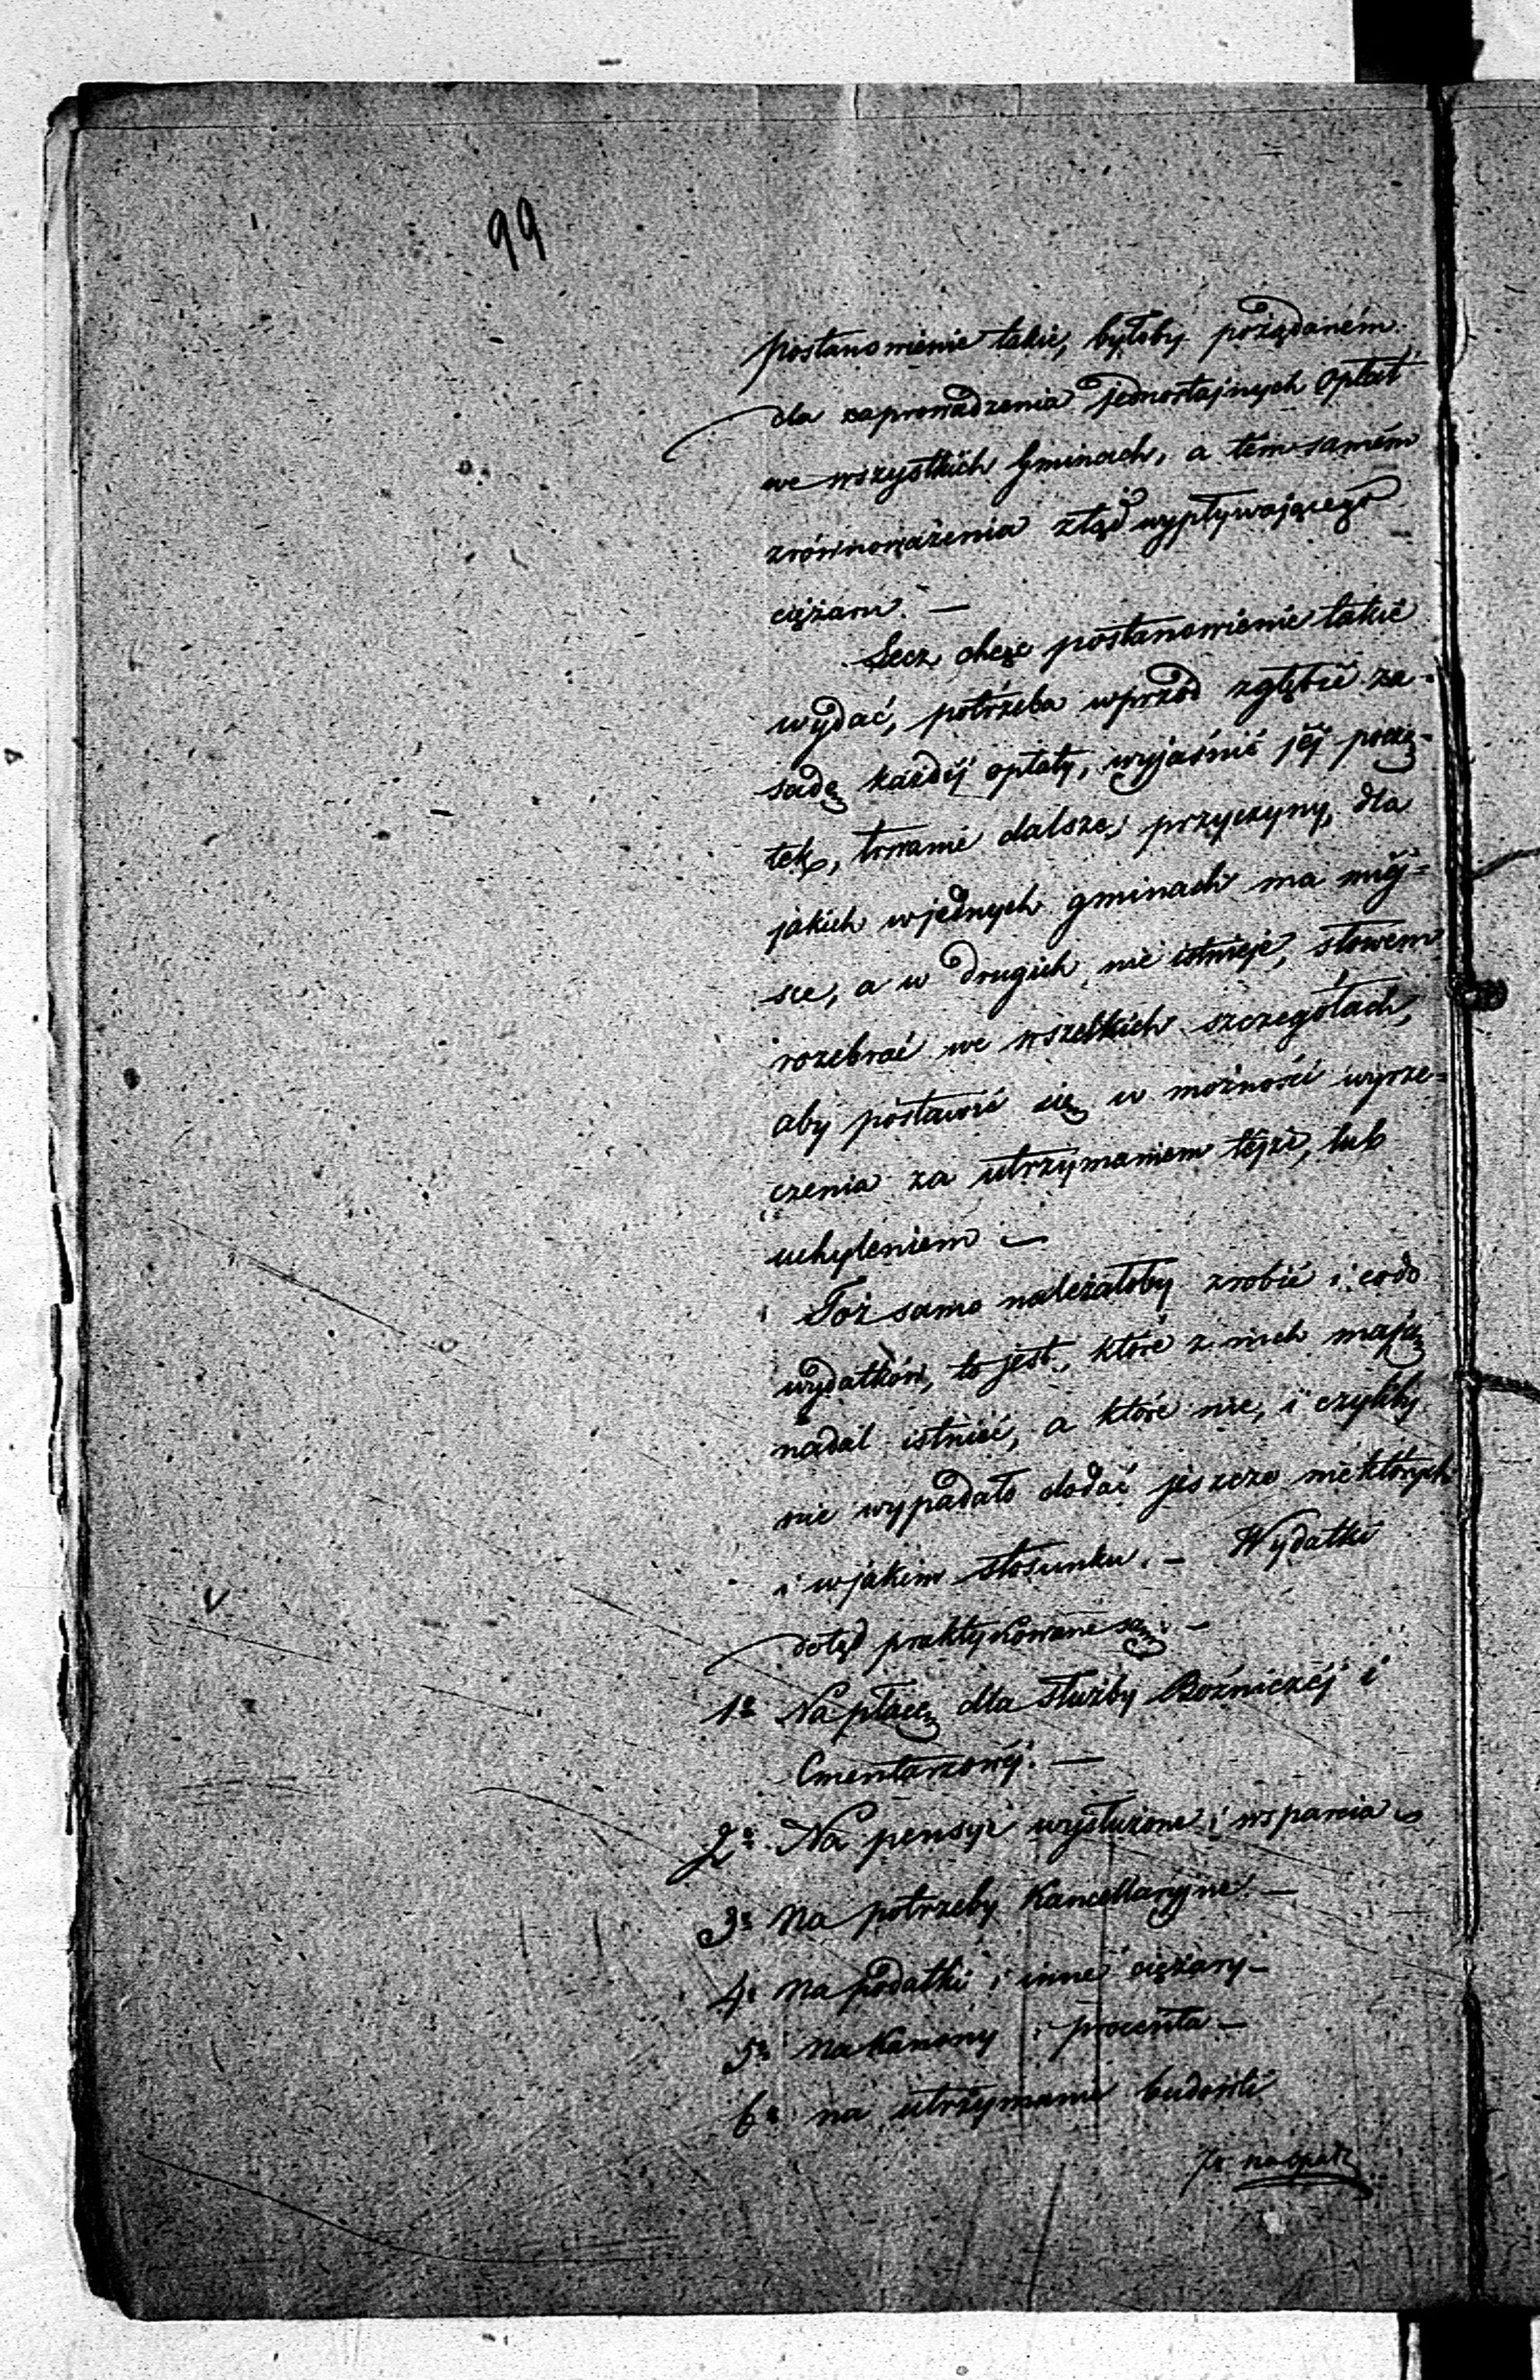 99
postanowienie takie, byłoby pożądaném
dla zaprowadzenia jednostajnych opłat
we wszystkich Gminach, a tém samém
zrównoważenia ztąd wypływającego
ciężaru. —
Lecz chcąc postanowienie takie
wydać, potrzeba wprzód zgłębić za-
sadę każdéj opłaty, wyjaśnić jéj począ-
tek, trwanie dalsze, przyczyny, dla
jakich w jednych gminach ma miéj=
sce, a w drugich nie istnieje, słowem
rozebrać we wszelkich szczegółach,
aby postawić się w możności wyrze=
czenia za utrzymaniem téjże, lub
uchyleniem. —
Toż samo należałoby zrobić i co do
wydatków, to jest, które z nich mają
nadal istnieć, a które nie, i czyliby
nie wypadało dodać jeszcze niektórych
i w jakim stosunku. — Wydatki
dotąd praktykowane są: —
1º Na płacę dla służby Bóżniczéj i
Cmentarzowéj. —
2º Na pensye wysłużone i wsparcia —
3º Na potrzeby Kancellaryjne. —
4º Na podatki i inne ciężary —
5º Na Kanony i procenta —
6º na utrzymanie budowli
7º na opał